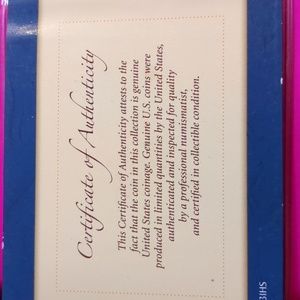 Certificate of Authenticity
This Certificate of Authenticity attests to the
fact that the coin in this collection is genuine
United States coinage. Genuine U.S. coins were
produced in limited quantities by the United States,
authenticated and inspected for quality
by a professional numismatist,
and certified in collectible condition.